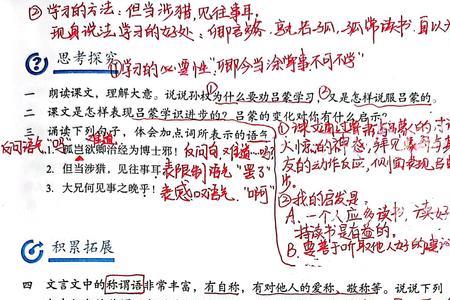 ②学习的方法:但当涉猎,见往事耳。
现身说法学习的好处:卿言多务,孰若孤,孤常读书,自以为
思考探究
①学习的必要性:"卿今当涂掌事,不可不学"
一 朗读课文,理解大意。说说孙权为什么要劝吕蒙学习,②又是怎样说服吕蒙的。
二 课文是怎样表现吕蒙学识进步的?吕蒙的变化对你有什么启示?
三 诵读下列句子,体会加点词所表示的语气
反问语气"吗"
1. 孤岂欲卿治经为博士邪!
反问句,难道…吗?
2. 但当涉猎,见往事耳
表限制语气"罢了"
3. 大兄何见事之晚乎!
表感叹语气"啊"
①课文通过鲁肃与吕蒙的
大惊的神态,拜见
友的动作反应,侧面表现吕
步。
②我的启发是:
A. 一个人应多读书,读好
持读书是有益的。
B. 要善于听取他人好的建议
积累拓展
四 文言文中的称谓语非常丰富,有自称,有对他人的爱称、敬称等。说说下列